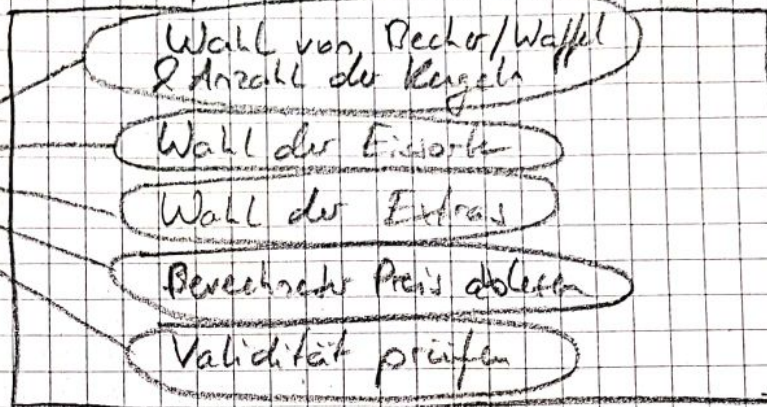 Wahl von Becher/Waffel
& Anzahl der Kugeln
Wahl der Eissorte
Wahl der Extras
Berechneter Preis ablesen
Validität prüfen